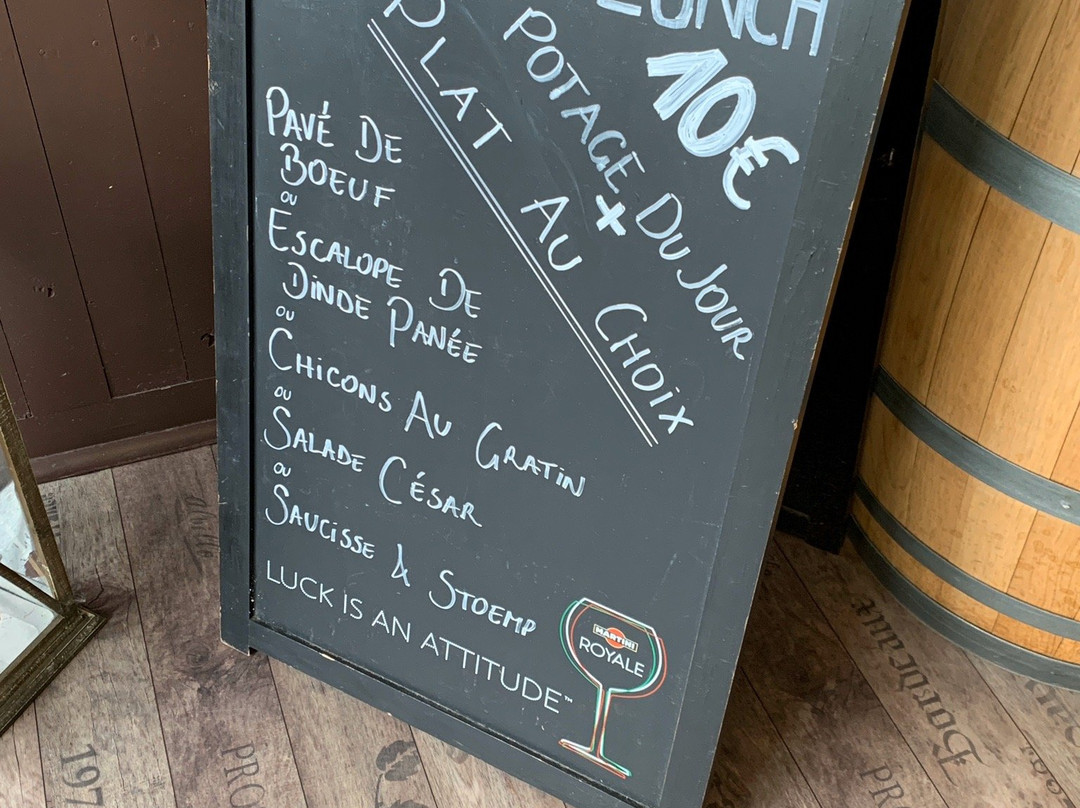 LUNCH
10€
POTAGE DU JOUR
+
PLAT AU CHOIX
PAVÉ DE
BOEUF
ou
ESCALOPE DE
DINDE PANÉE
ou
CHICONS AU GRATIN
ou
SALADE CÉSAR
ou
SAUCISSE & STOEMP
LUCK IS AN ATTITUDE™
MARTINI
ROYALE
197
PRO
Bordeaux
PR